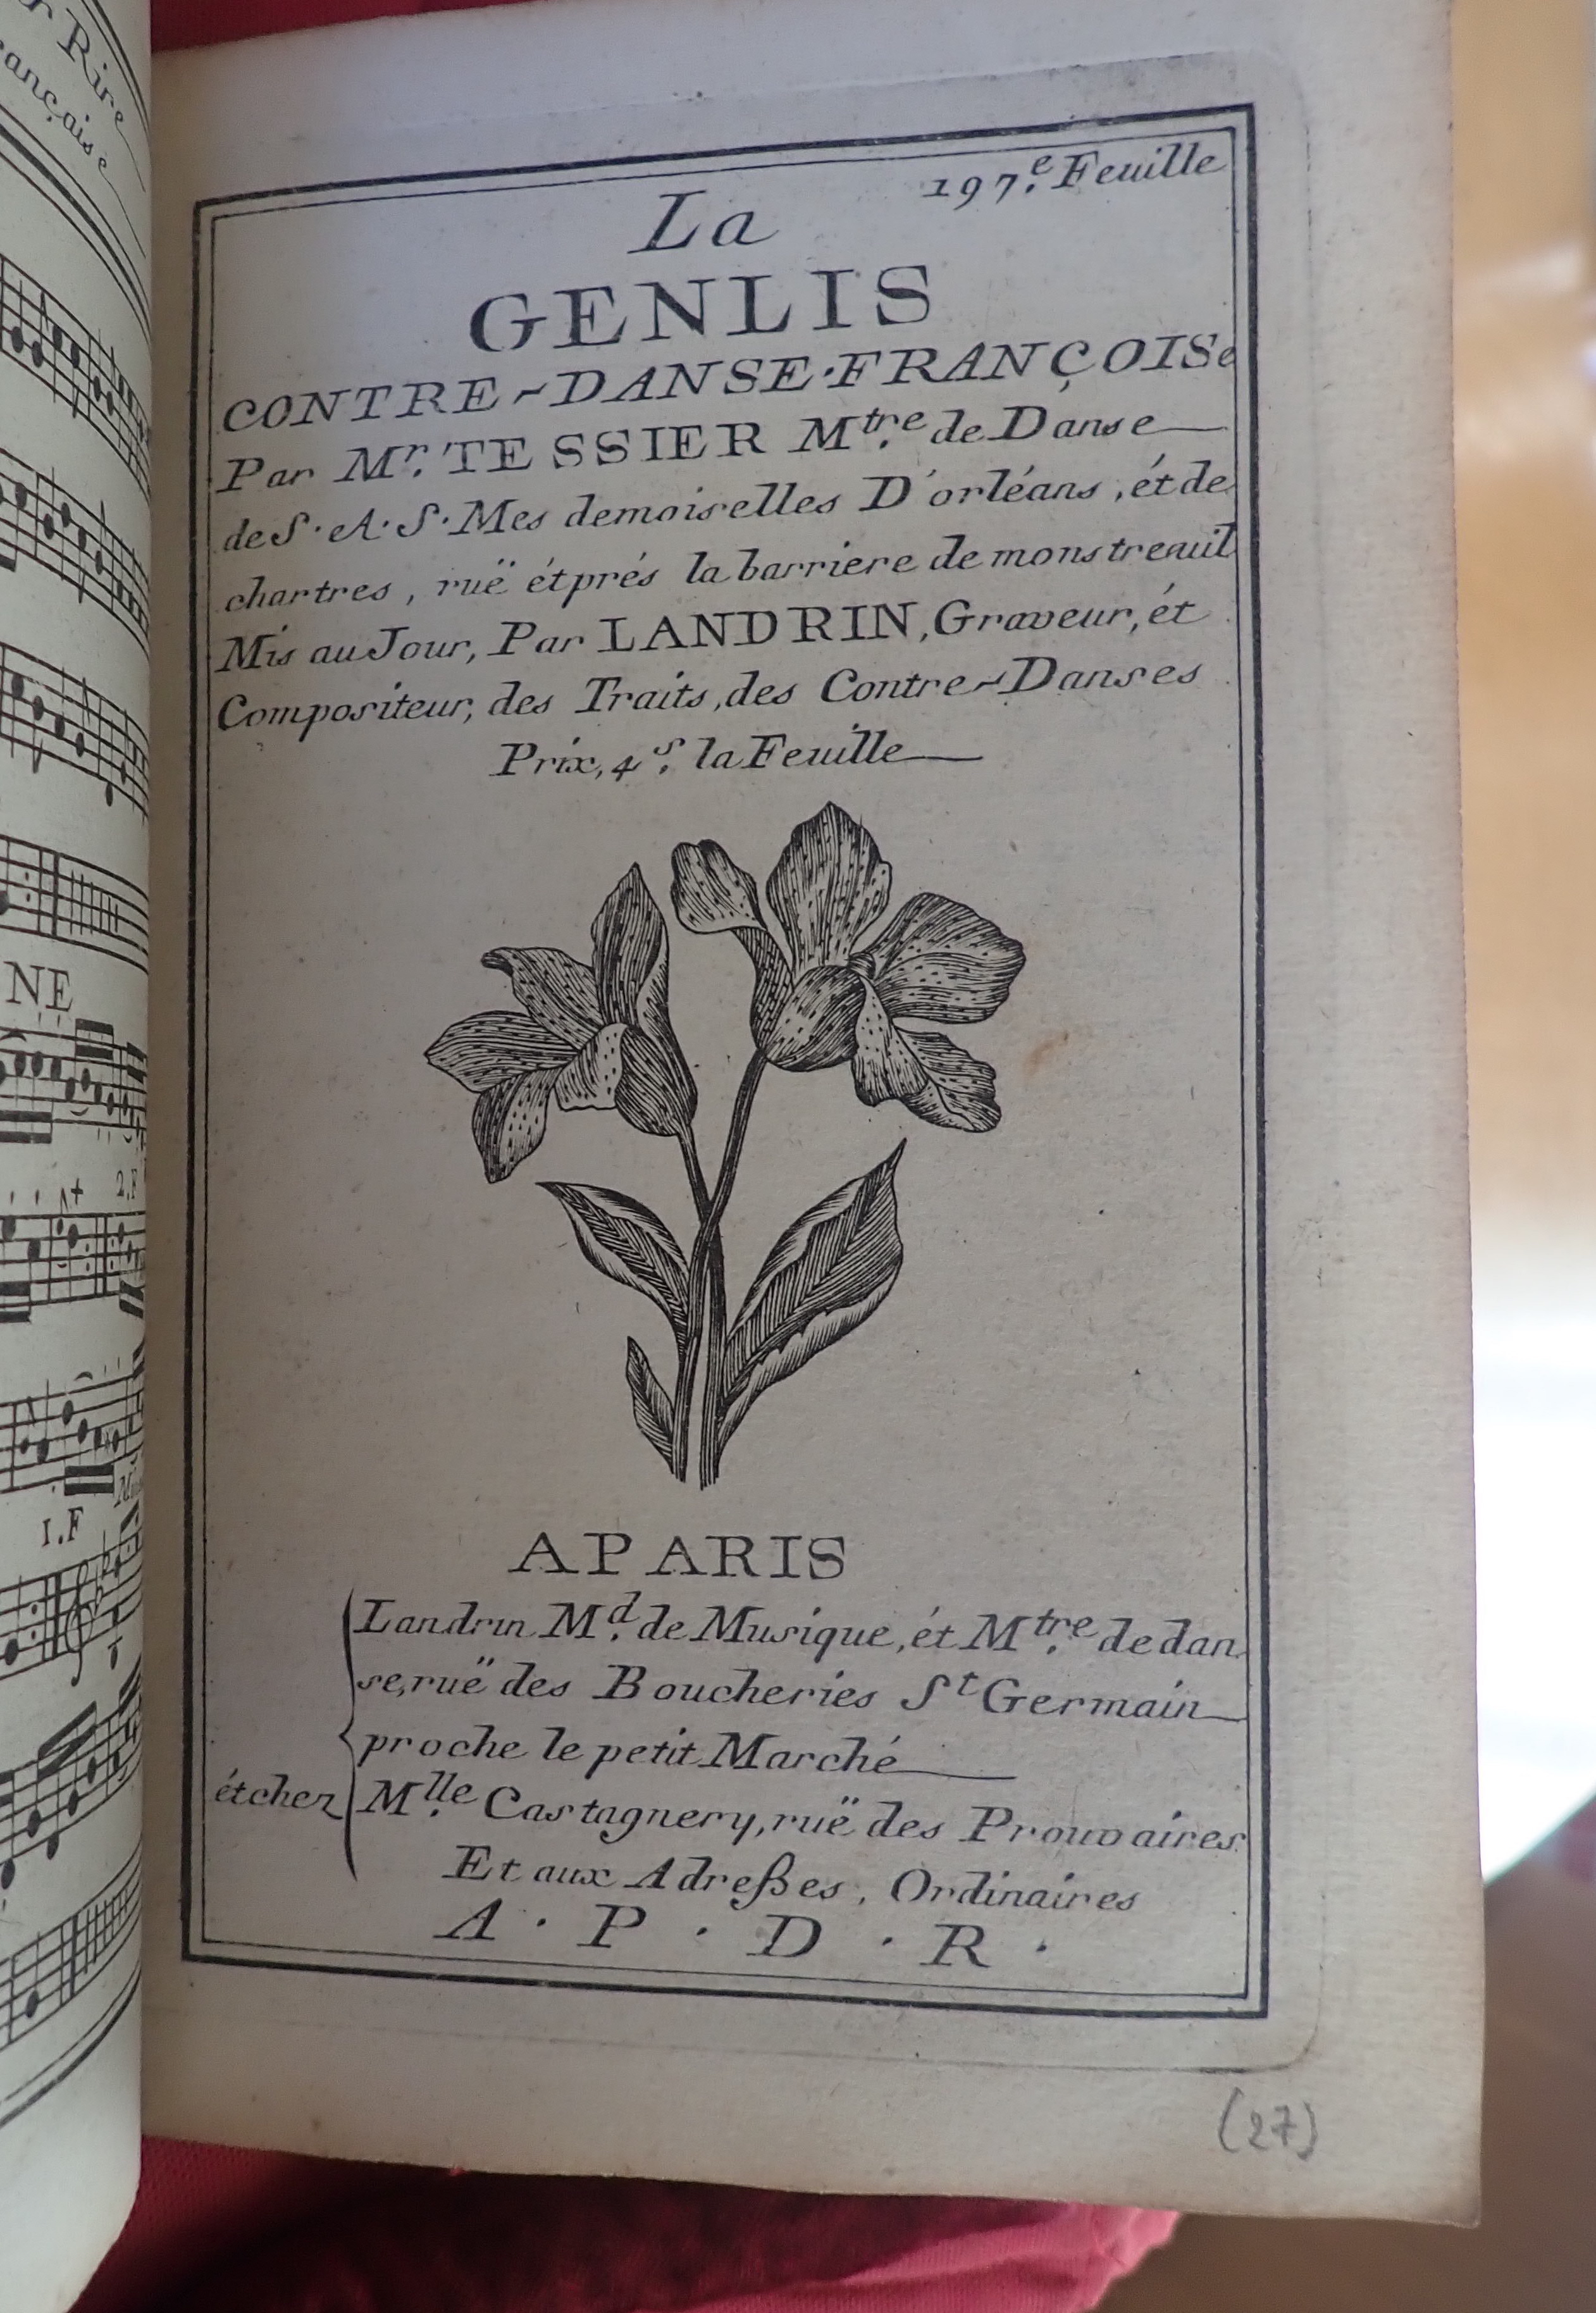 Rire
ançaise
NE
2.F
1.F
197.e Feuille
La
GENLIS
CONTRE-DANSE·FRANÇOISe
Par Mr. TESSIER Mtre. de Danse
de S·A·S·Mes demoiselles D'orléans, ét de
chartres, ruë ét prés la barriere de monstreuil
Mis au Jour, Par LANDRIN, Graveur, ét
Compositeur, des Traits, des Contre-Danses
Prix, 4s. la Feuille
A PARIS
Landrin Md. de Musique, ét Mtre. de dan
se, ruë des Boucheries St Germain
proche le petit Marché
ét chez Mlle. Castagnery, ruë des Prouvaires
Et aux Adreßes, Ordinaires
A · P · D · R ·
(27)